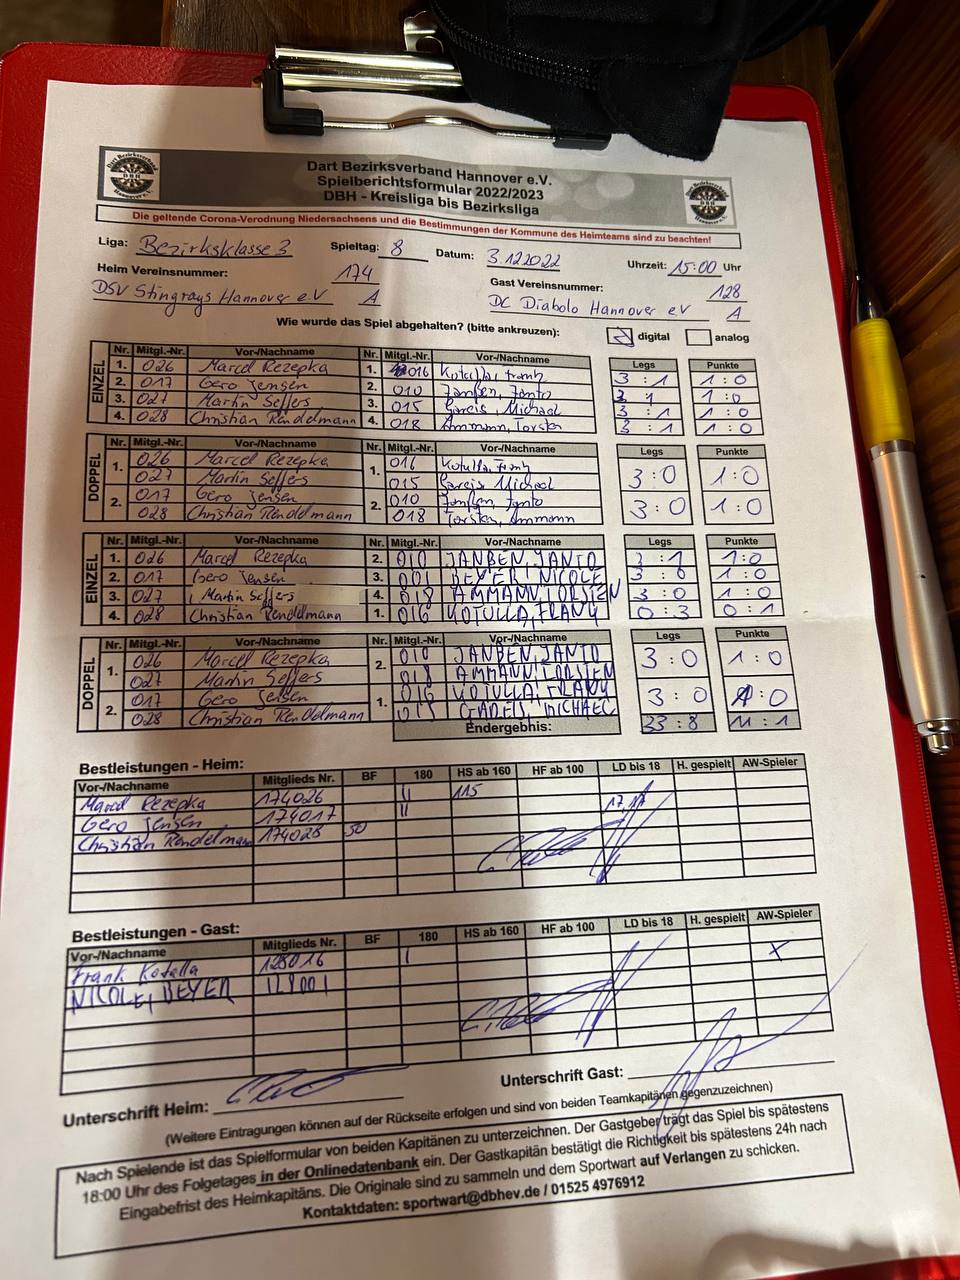 Dart Bezirksverband Hannover e.V.
Spielberichtsformular 2022/2023
DBH - Kreisliga bis Bezirksliga
Die geltende Corona-Verodnung Niedersachsens und die Bestimmungen der Kommune des Heimteams sind zu beachten!
Liga: Bezirksklasse 3 Spieltag: 8 Datum: 3.12.2022 Uhrzeit: 15:00 Uhr
Heim Vereinsnummer: 174 Gast Vereinsnummer: 128
DSV Stingrays Hannover e.V A DC Diabolo Hannover e.V A
Wie wurde das Spiel abgehalten? (bitte ankreuzen): digital analog
EINZEL
Nr. Mitgl.-Nr. Vor-/Nachname Nr. Mitgl.-Nr. Vor-/Nachname Legs Punkte
1. 026 Marcel Rezepka 1. 016 Kotulla, Frank 3 : 1 1 : 0
2. 017 Gero Jensen 2. 010 Janßen, Janto 3 : 1 1 : 0
3. 027 Martin Seffers 3. 015 Gareis, Michael 3 : 1 1 : 0
4. 028 Christian Rendelmann 4. 018 Ammann, Torsten 3 : 1 1 : 0
DOPPEL
Nr. Mitgl.-Nr. Vor-/Nachname Nr. Mitgl.-Nr. Vor-/Nachname Legs Punkte
1. 026 Marcel Rezepka 1. 016 Kotulla, Frank 3 : 0 1 : 0
027 Martin Seffers 015 Gareis Michael
2. 017 Gero Jensen 2. 010 Janßen, Janto 3 : 0 1 : 0
028 Christian Rendelmann 018 Torsten, Ammann
EINZEL
Nr. Mitgl.-Nr. Vor-/Nachname Nr. Mitgl.-Nr. Vor-/Nachname Legs Punkte
1. 026 Marcel Rezepka 2. 010 JANßEN, JANTO 3 : 1 1 : 0
2. 017 Gero Jensen 3. 001 BEYER, NICOLE 3 : 0 1 : 0
3. 027 Martin Seffers 4. 018 AMMANN, TORSTEN 3 : 0 1 : 0
4. 028 Christian Rendelmann 1. 016 KOTULLA, FRANK 0 : 3 0 : 1
DOPPEL
Nr. Mitgl.-Nr. Vor-/Nachname Nr. Mitgl.-Nr. Vor-/Nachname Legs Punkte
1. 026 Marcel Rezepka 2. 010 JANßEN, JANTO 3 : 0 1 : 0
027 Martin Seffers 018 AMMANN, TORSTEN
2. 017 Gero Jensen 1. 016 KOTULLA, FRANK 3 : 0 1 : 0
028 Christian Rendelmann 015 GAREIS, MICHAEL
Endergebnis: 33 : 8 11 : 1
Bestleistungen - Heim:
Vor-/Nachname Mitglieds Nr. BF 180 HS ab 160 HF ab 100 LD bis 18 H. gespielt AW-Spieler
Marcel Rezepka 174026 II 115 17, 17
Gero Jensen 174017 II
Christian Rendelmann 174028 50
Bestleistungen - Gast:
Vor-/Nachname Mitglieds Nr. BF 180 HS ab 160 HF ab 100 LD bis 18 H. gespielt AW-Spieler
Frank Kotulla 128016 I
NICOLE, BEYER 128001 X
Unterschrift Heim: Unterschrift Gast:
(Weitere Eintragungen können auf der Rückseite erfolgen und sind von beiden Teamkapitänen gegenzuzeichnen)
Nach Spielende ist das Spielformular von beiden Kapitänen zu unterzeichnen. Der Gastgeber trägt das Spiel bis spätestens
18:00 Uhr des Folgetages in der Onlinedatenbank ein. Der Gastkapitän bestätigt die Richtigkeit bis spätestens 24h nach
Eingabefrist des Heimkapitäns. Die Originale sind zu sammeln und dem Sportwart auf Verlangen zu schicken.
Kontaktdaten: sportwart@dbhev.de / 01525 4976912